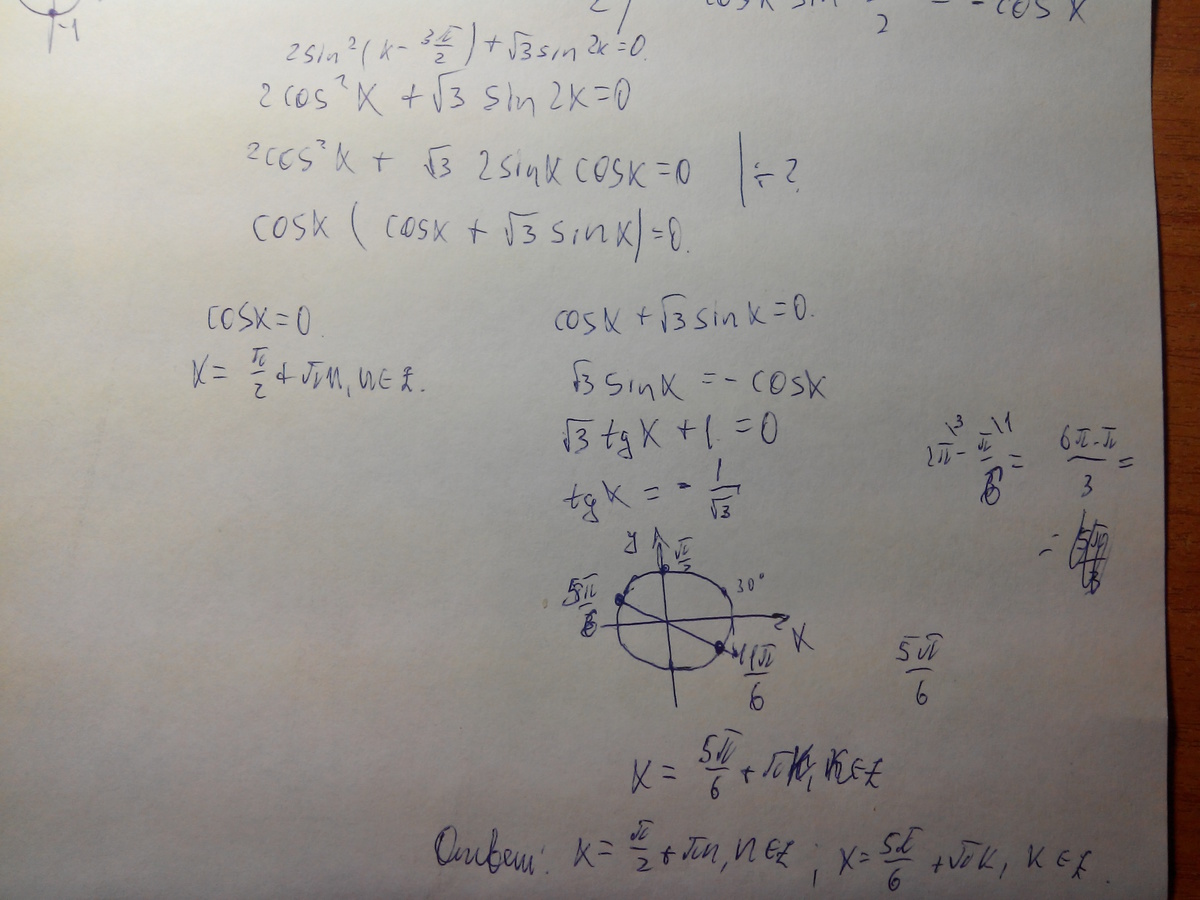 -1
2) cosx sin /2 = -cos x
2sin²(x - 3π/2) + √3 sin 2x = 0.
2cos²x + √3 sin 2x = 0
2cos²x + √3 2sinx cosx = 0 | ÷ 2
cosx ( cosx + √3 sinx) = 0.
cosx = 0.
x = π/2 + πn, n ∈ Z.
cosx + √3 sinx = 0.
√3 sinx = - cosx
√3 tgx + 1 = 0
tgx = - 1/√3
2π\3 - π/6\1 = 6π-π/3 =
=
y π/2
30°
5π/6
x
11π/6
5π/6
x = 5π/6 + πk, k ∈ Z
Ответ: x = π/2 + πn, n ∈ Z ; x = 5π/6 + πk, k ∈ Z.